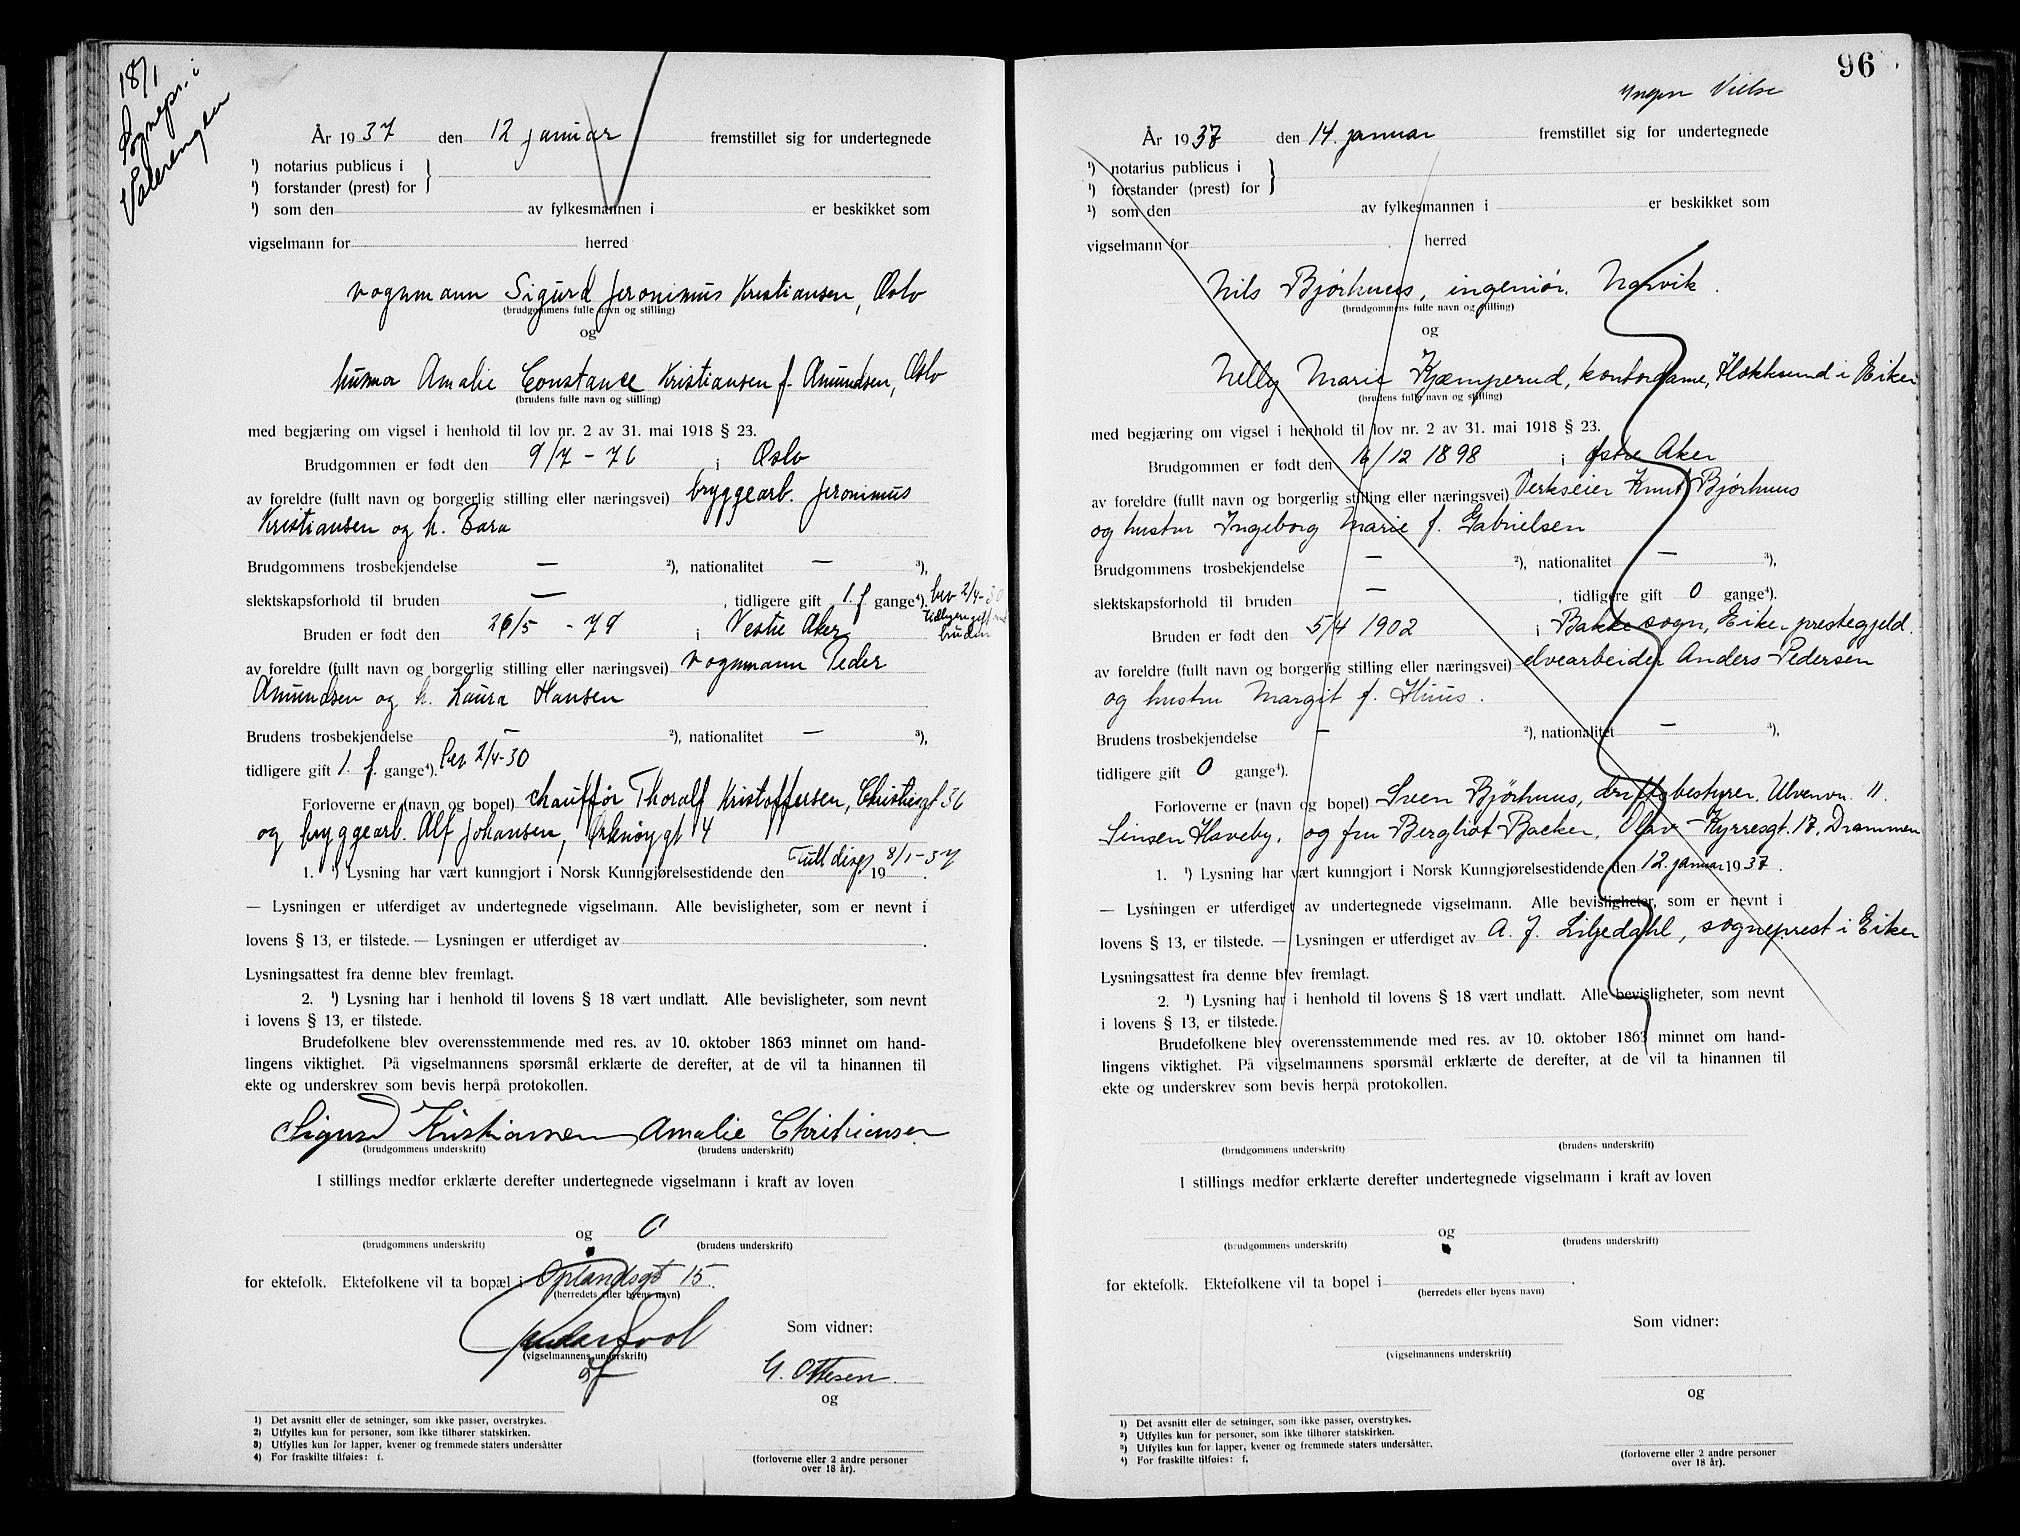 18/1
Sognepr. i
Vålerengen
År 1937 den 12 januar fremstillet sig for undertegnede
¹) notarius publicus i
¹) forstander (prest) for
¹) som den av fylkesmannen i er beskikket som
vigselmann for herred
vognmann Sigurd Jeronimus Kristiansen, Oslo
(brudgommens fulle navn og stilling)
og
husmor Amalie Constance Kristiansen f. Amundsen, Oslo
(brudens fulle navn og stilling)
med begjæring om vigsel i henhold til lov nr. 2 av 31. mai 1918 § 23.
Brudgommen er født den 9/7 - 76 i Oslo
av foreldre (fullt navn og borgerlig stilling eller næringsvei) bryggearb. Jeronimus
Kristiansen og h. Bara
Brudgommens trosbekjendelse — ²), nationalitet — ³),
slektskapsforhold til bruden — , tidligere gift 1 f gange⁴). bev 2/4-30
tidligere gift med
bruden
Bruden er født den 26/5 - 79 i Vestre Aker
av foreldre (fullt navn og borgerlig stilling eller næringsvei) vognmann Peder
Amundsen og h. Laura Hansen
Brudens trosbekjendelse — ²), nationalitet — ³),
tidligere gift 1. f. gange⁴). bev 2/4-30
Forloverne er (navn og bopel) chauffør Thoralf Kristoffersen, Christiesgt 36
og bryggearb. Alf Johansen, Orknøygt 4
1. ¹) Lysning har vært kunngjort i Norsk Kunngjørelsestidende den Full disp. 8/1-37 19 .
— Lysningen er utferdiget av undertegnede vigselmann. Alle bevisligheter, som er nevnt i
lovens § 13, er tilstede. — Lysningen er utferdiget av .
Lysningsattest fra denne blev fremlagt.
2. ¹) Lysning har i henhold til lovens § 18 vært undlatt. Alle bevisligheter, som nevnt
i lovens § 13, er tilstede.
Brudefolkene blev overensstemmende med res. av 10. oktober 1863 minnet om hand-
lingens viktighet. På vigselmannens spørsmål erklærte de derefter, at de vil ta hinannen til
ekte og underskrev som bevis herpå protokollen.
Sigurd Kristiansen Amalie Christiansen
(brudgommens underskrift) (brudens underskrift)
I stillings medfør erklærte derefter undertegnede vigselmann i kraft av loven
og
(brudgommens underskrift) (brudens underskrift)
for ektefolk. Ektefolkene vil ta bopæl i Oplandsgt 15.
(herredets eller byens navn)
Som vidner:
(vigselmannens underskrift)
G. Ottesen.
og
¹) Det avsnitt eller de setninger, som ikke passer, overstrykes.
²) Utfylles kun for personer, som ikke tilhører statskirken.
³) Utfylles kun for lapper, kvener og fremmede staters undersåtter
⁴) For fraskilte tilføies: f.
(forloverne eller 2 andre personer
over 18 år).
96
Ingen Vielse
År 1937 den 14. januar fremstillet sig for undertegnede
¹) notarius publicus i
¹) forstander (prest) for
¹) som den av fylkesmannen i er beskikket som
vigselmann for herred
Nils Bjørhuus, ingeniør. Narvik.
(brudgommens fulle navn og stilling)
og
Nelly Marie Kjæmperud, kontordame, Hokksund i Eiker
(brudens fulle navn og stilling)
med begjæring om vigsel i henhold til lov nr. 2 av 31. mai 1918 § 23.
Brudgommen er født den 16/12 1898 i Østre Aker
av foreldre (fullt navn og borgerlig stilling eller næringsvei) Verkseier Knut Bjørhuus
og hustru Ingeborg Marie f. Gabrielsen
Brudgommens trosbekjendelse — ²), nationalitet — ³),
slektskapsforhold til bruden — , tidligere gift 0 gange⁴).
Bruden er født den 5/4 1902 i Bakke sogn, Eiker prestegjeld.
av foreldre (fullt navn og borgerlig stilling eller næringsvei) elvearbeider Anders Pedersen
og hustru Margit f. Huus.
Brudens trosbekjendelse — ²), nationalitet — ³),
tidligere gift 0 gange⁴).
Forloverne er (navn og bopel) Sven Bjørhuus, driftsbestyrer, Ulvenvn. 11.
Sinsen Haveby, og fru Bergliot Backer, Olav Kyrresgt. 17, Drammen
1. ¹) Lysning har vært kunngjort i Norsk Kunngjørelsestidende den 12. januar 1937.
— Lysningen er utferdiget av undertegnede vigselmann. Alle bevisligheter, som er nevnt i
lovens § 13, er tilstede. — Lysningen er utferdiget av A. J. Liljedahl, sogneprest i Eiker
Lysningsattest fra denne blev fremlagt.
2. ¹) Lysning har i henhold til lovens § 18 vært undlatt. Alle bevisligheter, som nevnt
i lovens § 13, er tilstede.
Brudefolkene blev overensstemmende med res. av 10. oktober 1863 minnet om hand-
lingens viktighet. På vigselmannens spørsmål erklærte de derefter, at de vil ta hinannen til
ekte og underskrev som bevis herpå protokollen.
(brudgommens underskrift) (brudens underskrift)
I stillings medfør erklærte derefter undertegnede vigselmann i kraft av loven
og
(brudgommens underskrift) (brudens underskrift)
for ektefolk. Ektefolkene vil ta bopel i .
(herredets eller byens navn)
Som vidner:
(vigselmannens underskrift)
og
¹) Det avsnitt eller de setninger, som ikke passer, overstrykes.
²) Utfylles kun for personer, som ikke tilhører statskirken.
³) Utfylles kun for lapper, kvener og fremmede staters undersåtter.
⁴) For fraskilte tilføies: f.
(forloverne eller 2 andre personer
over 18 år).